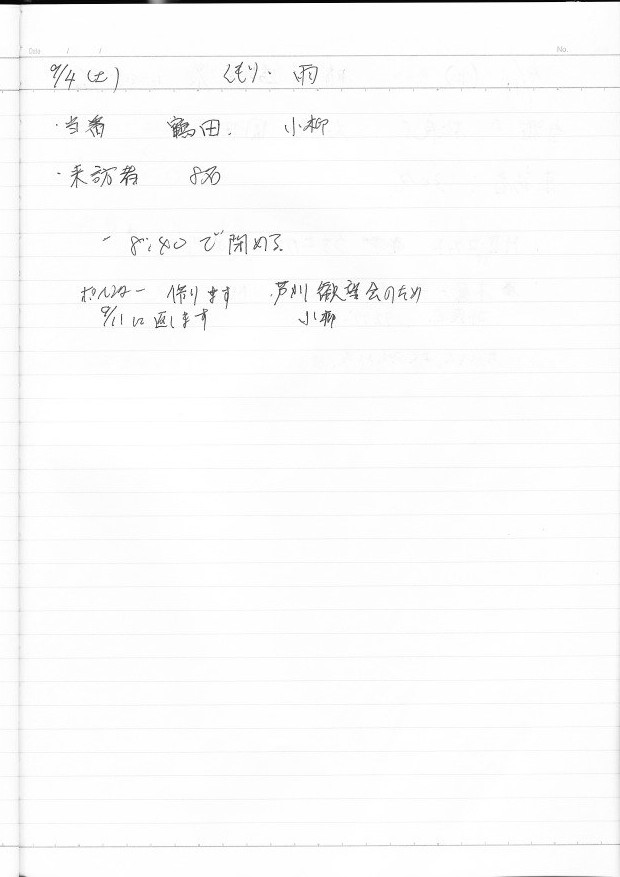 Date / /
No.
9/4 (土) くもり・雨
・当番 鶴田. 小柳
・来訪者 8名
- 8:40で閉める
ポインター 借ります 芦刈観望会のため
9/11に返します 小柳